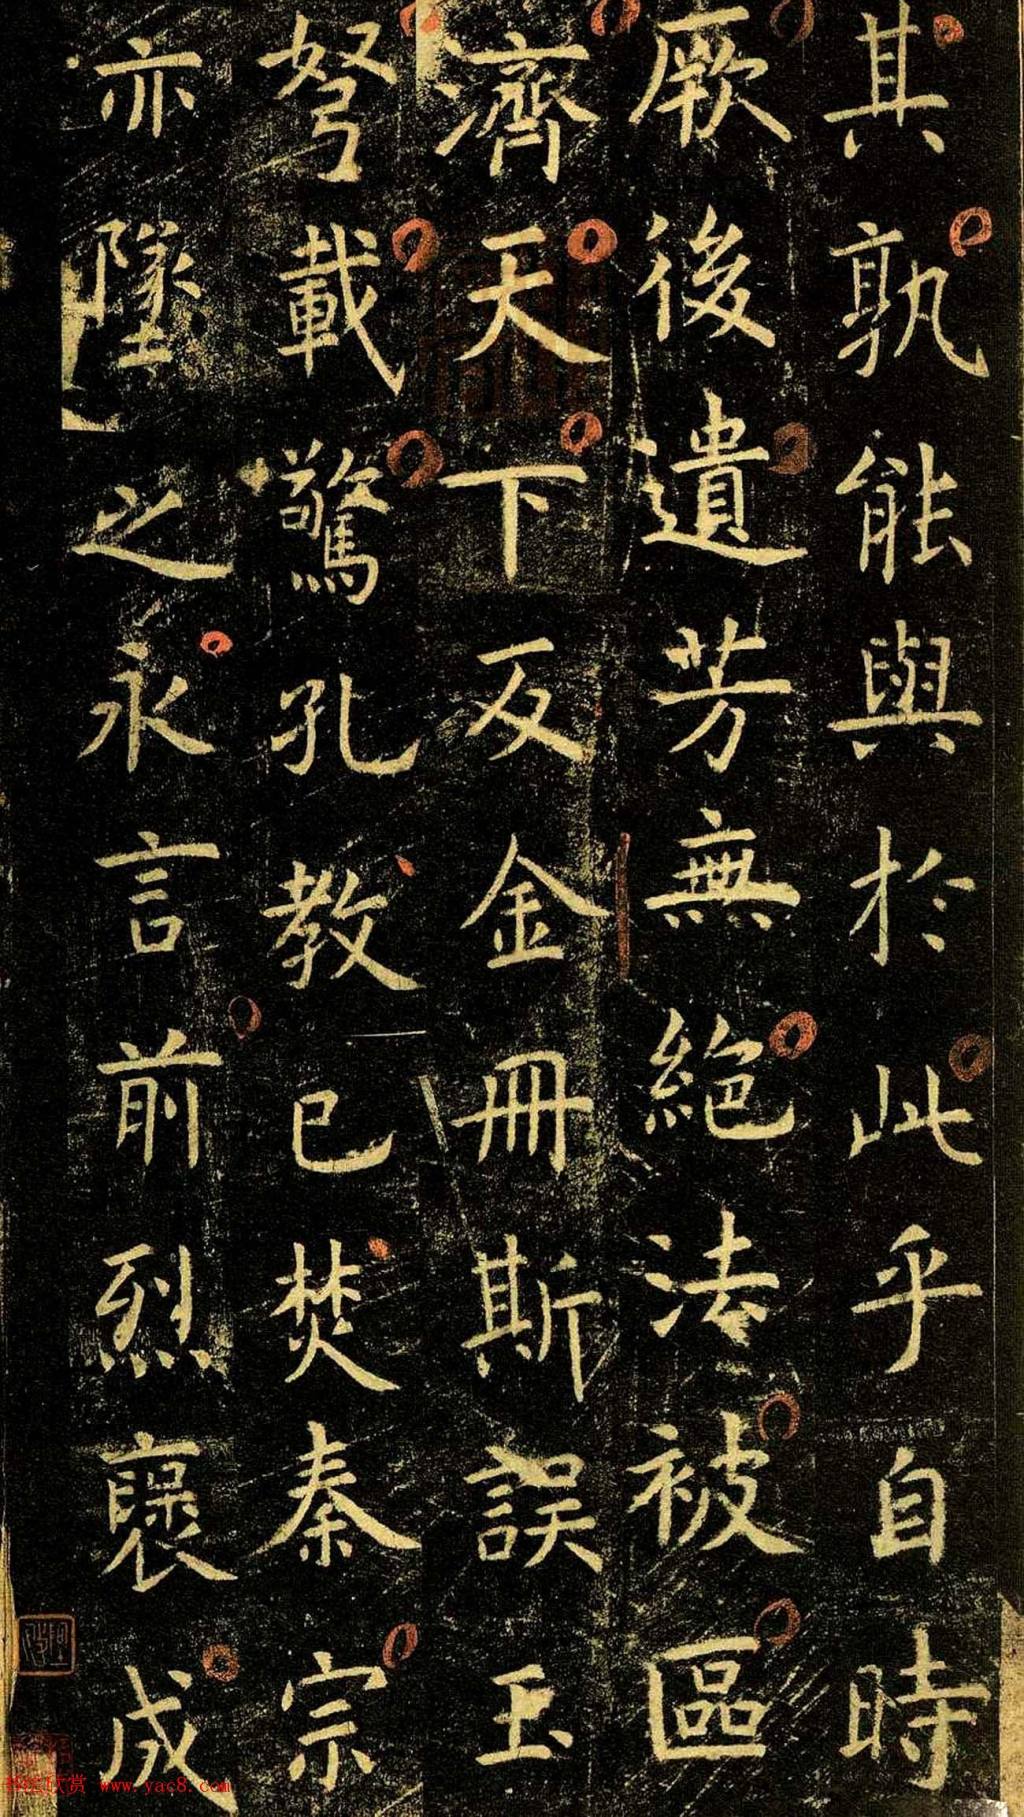 其孰能與於此乎自時
厥後遺芳無絕法被區
濟天下反金冊斯誤玉
弩載驚孔教已焚秦宗
亦墜之永言前烈襃成
www.yac8.com